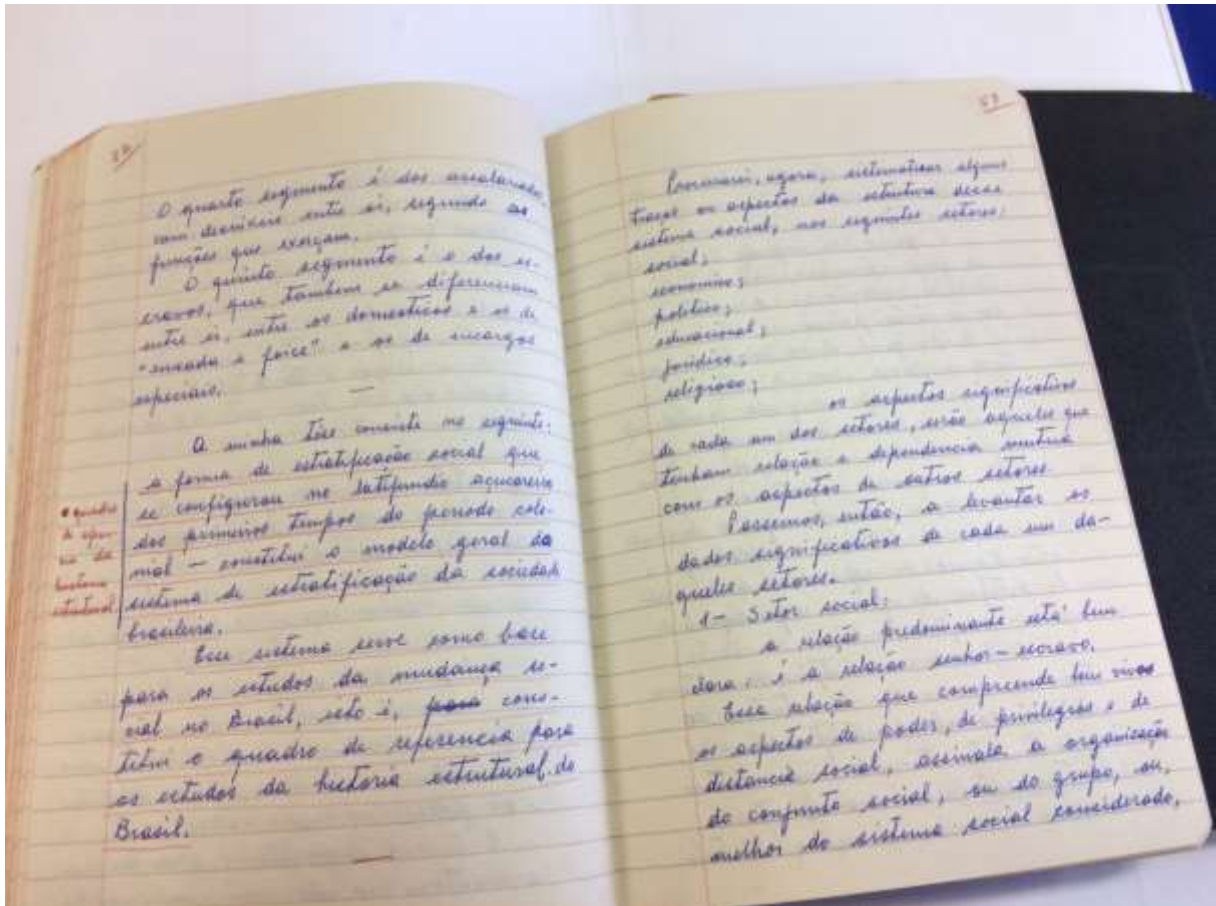 O quarto segmento é dos assalariados,
com desníveis entre si, segundo as
funções que exerçam.
O quinto segmento é o dos es-
cravos, que tambem se diferenciam
entre si, entre os domesticos e os de
"enxada e foice" e os de encargos
especiais.
A minha tése consiste no seguinte:
a forma de estratificação social que
se configurou no latifundio açucareiro
dos primeiros tempos do periodo colo-
nial — constitui o modelo geral do
sistema de estratificação da sociedade
brasileira.
Esse sistema serve como base
para os estudos da mudança so-
cial no Brasil, isto é, para cons-
titui o quadro de referencia para
os estudos da historia estrutural do
Brasil.
o quadro
de
cia da
historia
estrutural
59
Procurarei, agora, sistematizar alguns
traços ou aspectos da estrutura desse
sistema social, nos seguintes setores:
social;
economico;
politico;
educacional;
juridico;
religioso;
os aspectos significativos
de cada um dos setores, serão aqueles que
tenham relação e dependencia mutua
com os aspectos de outros setores
Passemos, então, a levantar os
dados significativos de cada um da-
queles setores.
1- Setor social:
a relação predominante está bem
clara: é a relação senhor-escravo.
Essa relação que compreende bem vivos
os aspectos de poder, de privilegios e de
distancia social, assinala a organização
do conjunto social, ou do grupo, ou,
melhor do sistema social considerado,